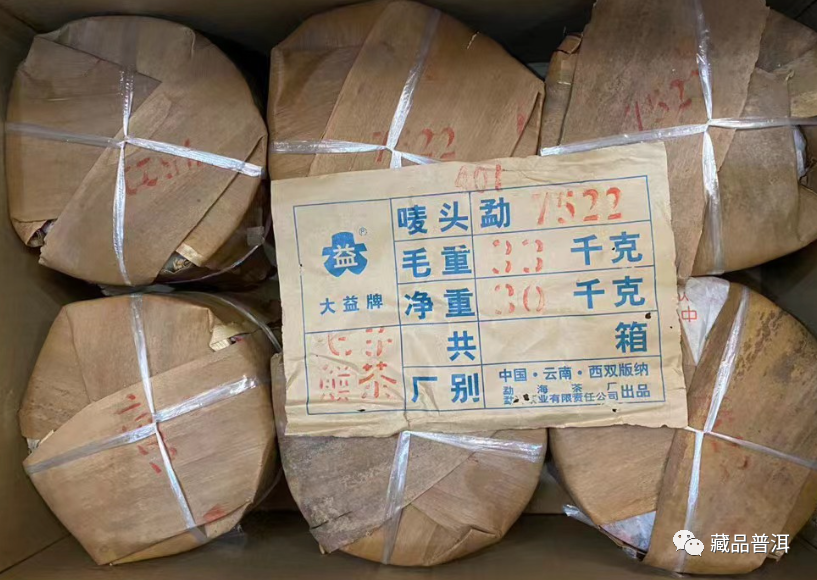 7522
401
唛头 勐 7522
益
毛重 33 千克
大益牌
净重 30 千克
共 箱
餅茶
厂别
中国·云南·西双版纳
勐海茶厂
业有限责任公司 出品
中
藏品普洱